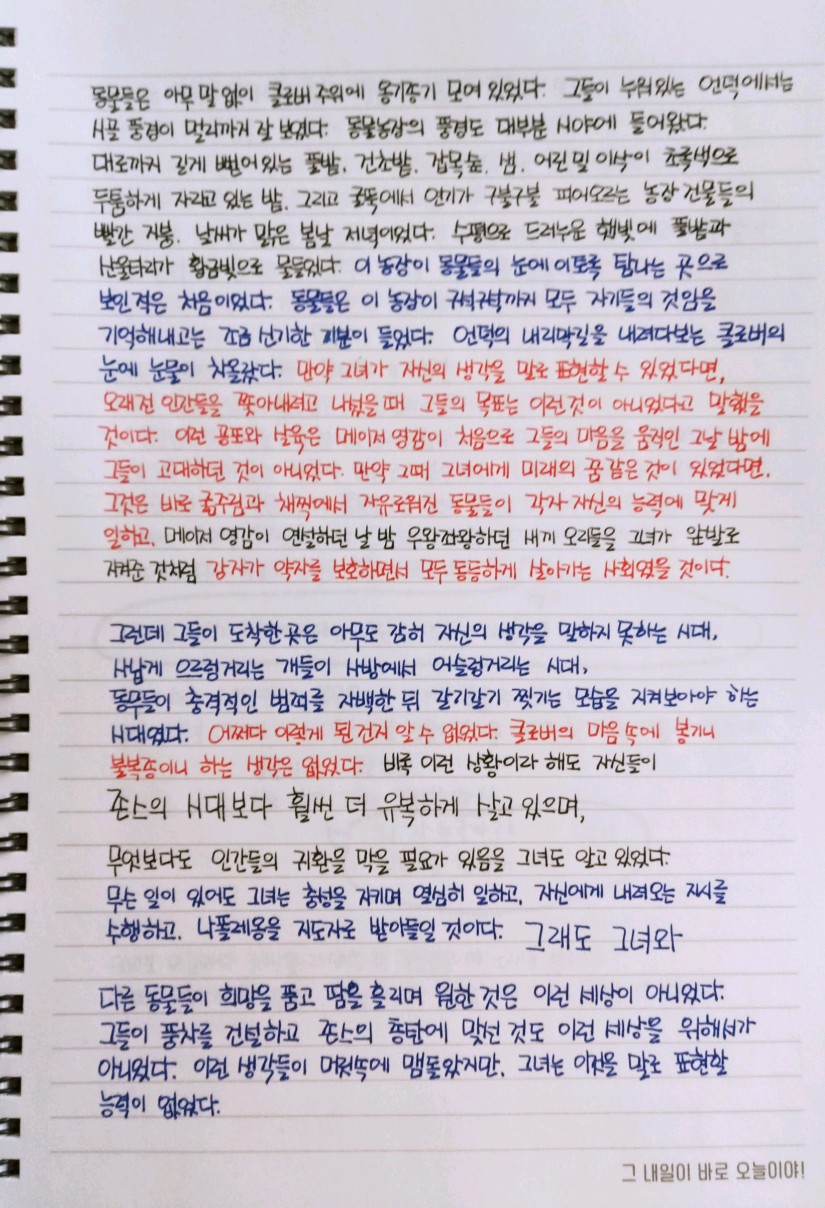 동물들은 아무 말 없이 클로버 주위에 옹기종기 모여 있었다. 그들이 누워있는 언덕에서는
시골 풍경이 멀리까지 잘 보였다. 동물농장의 풍경도 대부분 시야에 들어왔다.
대로까지 길게 뻗어있는 풀밭, 건초밭, 잡목숲, 샘, 어린 밀 이삭이 초록색으로
두툼하게 자라고 있는 밭, 그리고 굴뚝에서 연기가 구불구불 피어오르는 농장 건물들의
빨간 지붕. 날씨가 맑은 봄날 저녁이었다. 수평으로 드러누운 햇빛에 풀밭과
산울타리가 황금빛으로 물들었다. 이 농장이 동물들의 눈에 이토록 탐나는 곳으로
보인 적은 처음이었다. 동물들은 이 농장이 구석구석까지 모두 자기들의 것임을
기억해내고는 조금 신기한 기분이 들었다. 언덕의 내리막길을 내려다보는 클로버의
눈에 눈물이 차올랐다. 만약 그녀가 자신의 생각을 말로 표현할 수 있었다면,
오래전 인간들을 쫓아내려고 나섰을 때 그들의 목표는 이런 것이 아니었다고 말했을
것이다. 이런 공포와 살육은 메이저 영감이 처음으로 그들의 마음을 움직인 그날 밤에
그들이 고대하던 것이 아니었다. 만약 그때 그녀에게 미래의 꿈 같은 것이 있었다면,
그것은 바로 굶주림과 채찍에서 자유로워진 동물들이 각자 자신의 능력에 맞게
일하고, 메이저 영감이 연설하던 날 밤 우왕좌왕하던 새끼 오리들을 그녀가 앞발로
지켜준 것처럼 강자가 약자를 보호하면서 모두 동등하게 살아가는 사회였을 것이다.
그런데 그들이 도착한 곳은 아무도 감히 자신의 생각을 말하지 못하는 시대,
사납게 으르렁거리는 개들이 사방에서 어슬렁거리는 시대,
동무들이 충격적인 범죄를 자백한 뒤 갈기갈기 찢기는 모습을 지켜보아야 하는
시대였다. 어쩌다 이렇게 된 건지 알 수 없었다. 클로버의 마음 속에 봉기니
불복종이니 하는 생각은 없었다. 비록 이런 상황이라 해도 자신들이
존스의 시대보다 훨씬 더 유복하게 살고 있으며,
무엇보다도 인간들의 귀환을 막을 필요가 있음을 그녀도 알고 있었다.
무슨 일이 있어도 그녀는 충성을 지키며 열심히 일하고, 자신에게 내려오는 지시를
수행하고, 나폴레옹을 지도자로 받아들일 것이다. 그래도 그녀와
다른 동물들이 희망을 품고 땀을 흘리며 원한 것은 이런 세상이 아니었다.
그들이 풍차를 건설하고 존스의 총탄에 맞선 것도 이런 세상을 위해서가
아니었다. 이런 생각들이 머릿속에 맴돌았지만, 그녀는 이것을 말로 표현할
능력이 없었다.
그 내일이 바로 오늘이야!